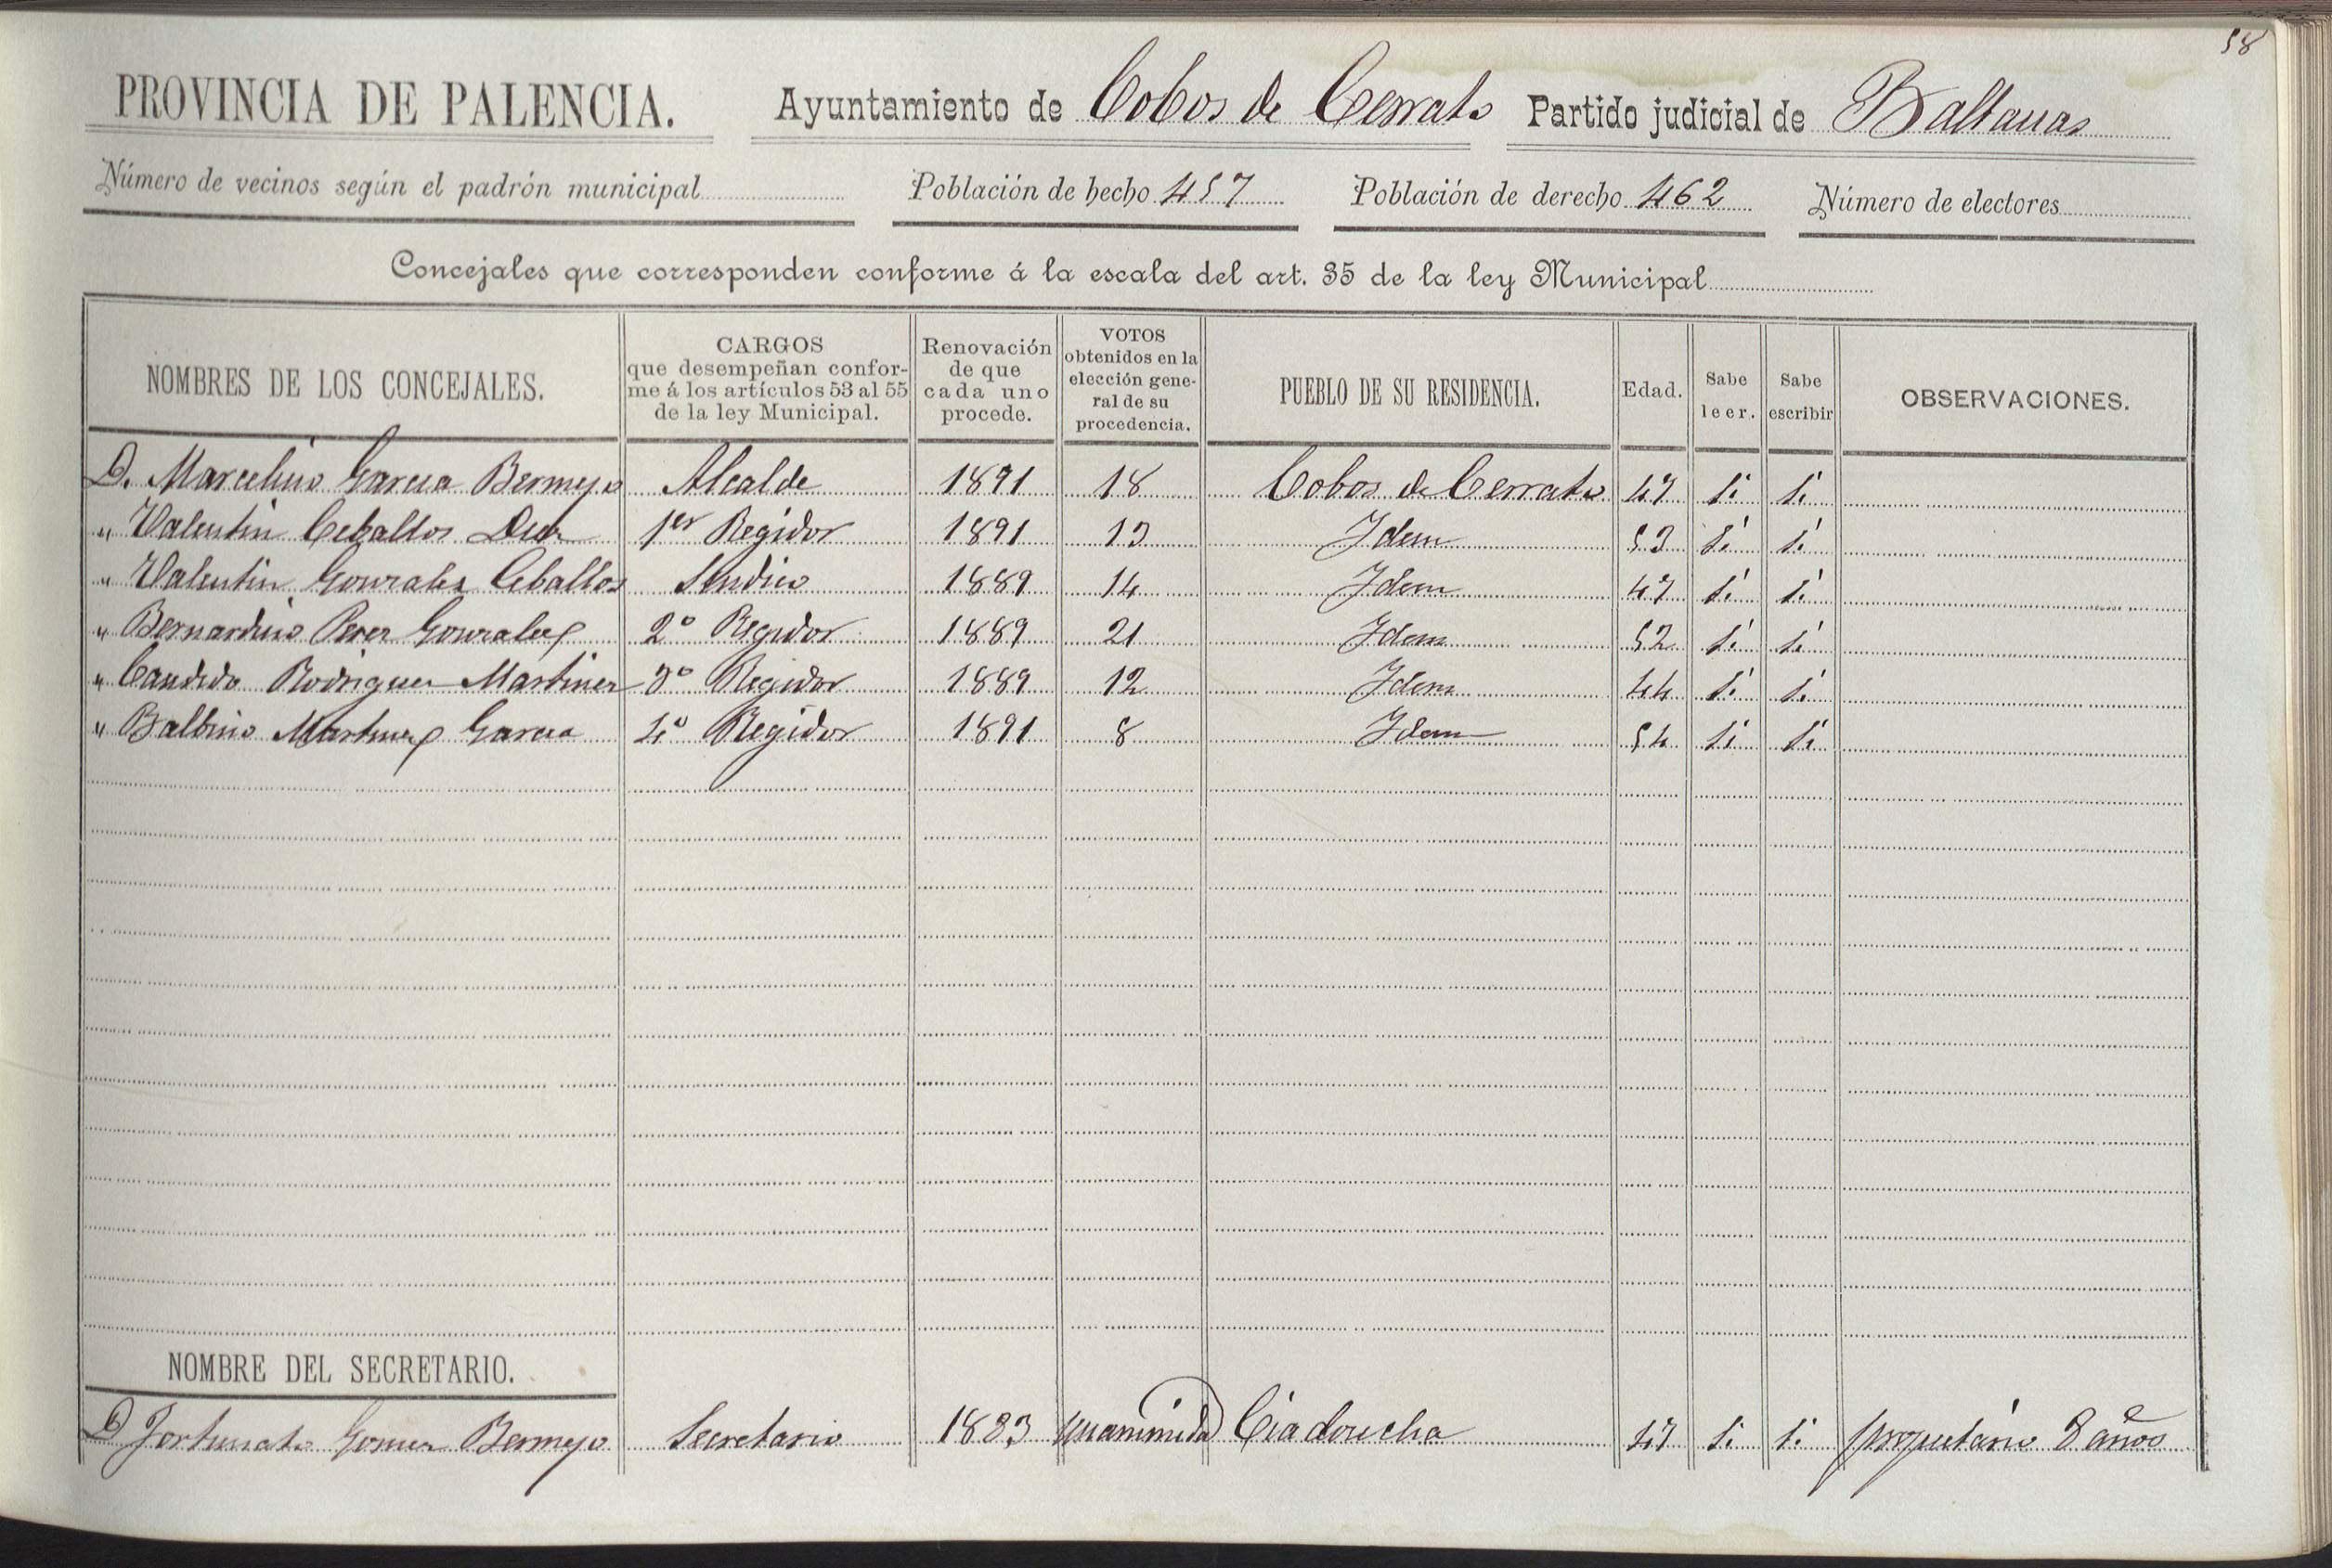 58
PROVINCIA DE PALENCIA. Ayuntamiento de Cobos de Cerrato Partido judicial de Baltanas
Número de vecinos según el padrón municipal Población de hecho 457 Población de derecho 462 Número de electores
Concejales que corresponden conforme á la escala del art. 35 de la ley Municipal
NOMBRES DE LOS CONCEJALES.
CARGOS
que desempeñan confor-
me á los artículos 53 al 55
de la ley Municipal.
Renovación
de que
cada uno
procede.
VOTOS
obtenidos en la
elección gene-
ral de su
procedencia.
PUEBLO DE SU RESIDENCIA.
Edad.
Sabe
leer.
Sabe
escribir
OBSERVACIONES.
D. Marcelino Garcia Bermejo Alcalde 1891 18 Cobos de Cerrato 47 si si
" Valentin Ceballos Diez 1er Regidor 1891 13 Idem 53 si si
" Valentin Gonzales Ceballos Sindico 1889 14 Idem 47 si si
" Bernardino Perez Gonzalez 2º Regidor 1889 21 Idem 52 si si
" Candido Rodriguez Martinez 3º Regidor 1889 12 Idem 44 si si
" Balbino Martinez Garcia 4º Regidor 1891 8 Idem 54 si si
NOMBRE DEL SECRETARIO.
D Fortunato Gomez Bermejo Secretario 1883 unanimida Ciadoncha 47 si si propietario 8 años